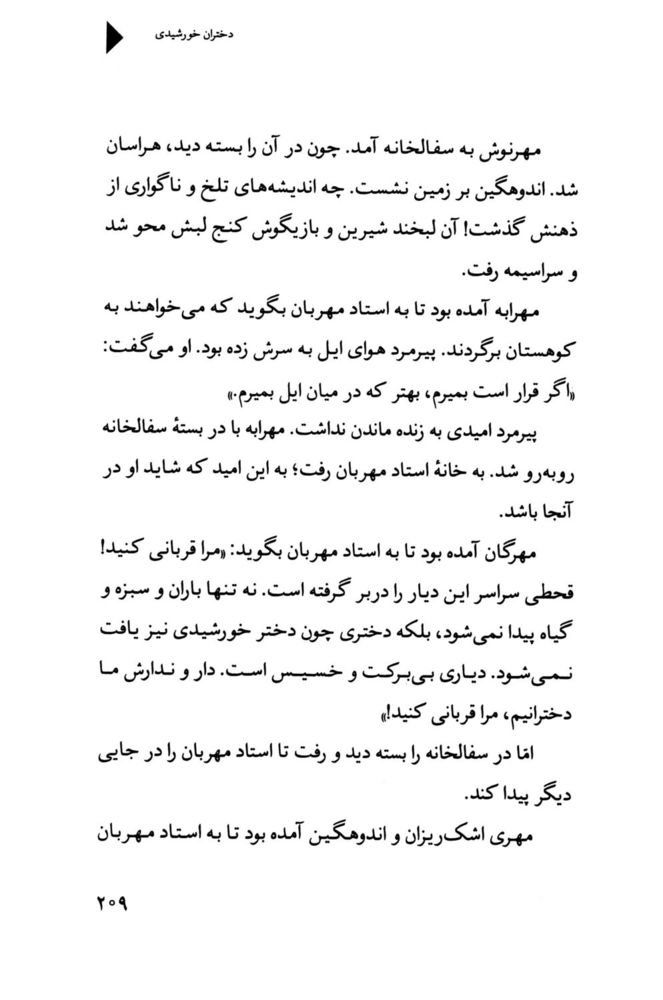 دختران خورشیدی
مهرنوش به سفالخانه آمد. چون در آن را بسته دید، هراسان
شد. اندوهگین بر زمین نشست. چه اندیشه‌های تلخ و ناگواری از
ذهنش گذشت! آن لبخند شیرین و بازیگوش کنج لبش محو شد
و سراسیمه رفت.
مهرابه آمده بود تا به استاد مهربان بگوید که می‌خواهند به
کوهستان برگردند. پیرمرد هوای ایل به سرش زده بود. او می‌گفت:
«اگر قرار است بمیرم، بهتر که در میان ایل بمیرم.»
پیرمرد امیدی به زنده ماندن نداشت. مهرابه با در بستهٔ سفالخانه
روبه‌رو شد. به خانهٔ استاد مهربان رفت؛ به این امید که شاید او در
آنجا باشد.
مهرگان آمده بود تا به استاد مهربان بگوید: «مرا قربانی کنید!
قحطی سراسر این دیار را دربر گرفته است. نه تنها باران و سبزه و
گیاه پیدا نمی‌شود، بلکه دختری چون دختر خورشیدی نیز یافت
نمی‌شود. دیاری بی‌برکت و خسیس است. دار و ندارش ما
دخترانیم، مرا قربانی کنید!»
امّا در سفالخانه را بسته دید و رفت تا استاد مهربان را در جایی
دیگر پیدا کند.
مهری اشک‌ریزان و اندوهگین آمده بود تا به استاد مهربان
۲۰۹